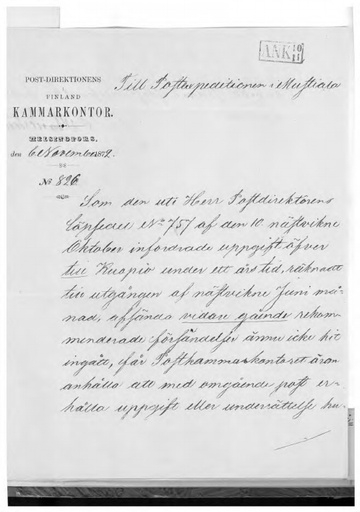 ANK 10/11
POST-DIREKTIONENS
FINLAND
KAMMARKONTOR.
HELSINGFORS,
den 6 November 1872.
No 826.
Till Postexpeditionen i Mustiala
Som den uti Herr Postdirektorens
Löpsedel No 757 af den 10 nästvikne
Oktober infordrade uppgift öfver
till Kuopio under ett års tid, räknadt
till utgången af nästvikne Juni må-
nad, afsända vidare gående rekom-
menderade försändelser ännu icke hit
ingått, får Postkammarkontoret äran
anhålla att med omgående post er-
hålla uppgift eller underrättelse hu-